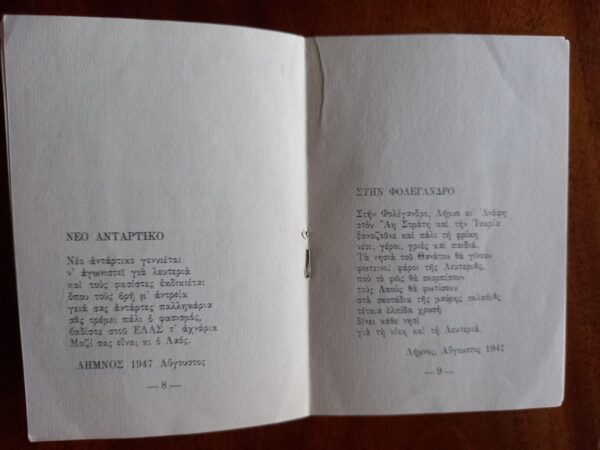 ΝΕΟ ΑΝΤΑΡΤΙΚΟ
Νέο ἀντάρτικο γεννιέται
ν' ἀγωνιστεῖ γιὰ λευτεριὰ
καὶ τοὺς φασίστες ἐκδικιέται
ὅπου τοὺς βρῆ μ' ἀντρεία
γειά σας ἀντάρτες παλληκάρια
σᾶς τρέμει πάλι ὁ φασισμός,
βαδίστε στοῦ ΕΛΑΣ τ' ἀχνάρια
Μαζί σας εἶναι κι ὁ Λαός.
ΛΗΜΝΟΣ 1947 Αὔγουστος
— 8 —
ΣΤΗΝ ΦΟΛΕΓΑΝΔΡΟ
Στὴν Φολέγανδρο, Λῆμνο κι' Ἀνάφη
στὸν Ἄη Στράτη καὶ τὴν Ἰκαρία
ξαναζοῦνε καὶ πάλι τὴ φρίκη
νέοι, γέροι, γριὲς καὶ παιδιά.
Τὰ νησιὰ τοῦ Θανάτου θὰ γίνουν
φωτεινοὶ φάροι τῆς Λευτεριᾶς,
ποὺ τὸ φῶς θὰ σκορπίσουν
τοὺς Λαοὺς θὰ φωτίσουν
στὰ σκοτάδια τῆς μαύρης σκλαβιᾶς
τέτοια ἐλπίδα χρυσῆ
δίνει κάθε νησὶ
γιὰ τὴ νίκη καὶ τὴ Λευτεριά.
Λῆμνος, Αὔγουστος 1947
— 9 —